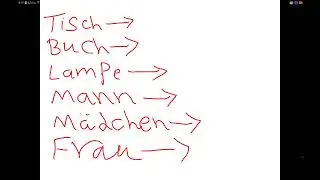 Tisch →
Buch →
Lampe →
Mann →
Mädchen →
Frau →